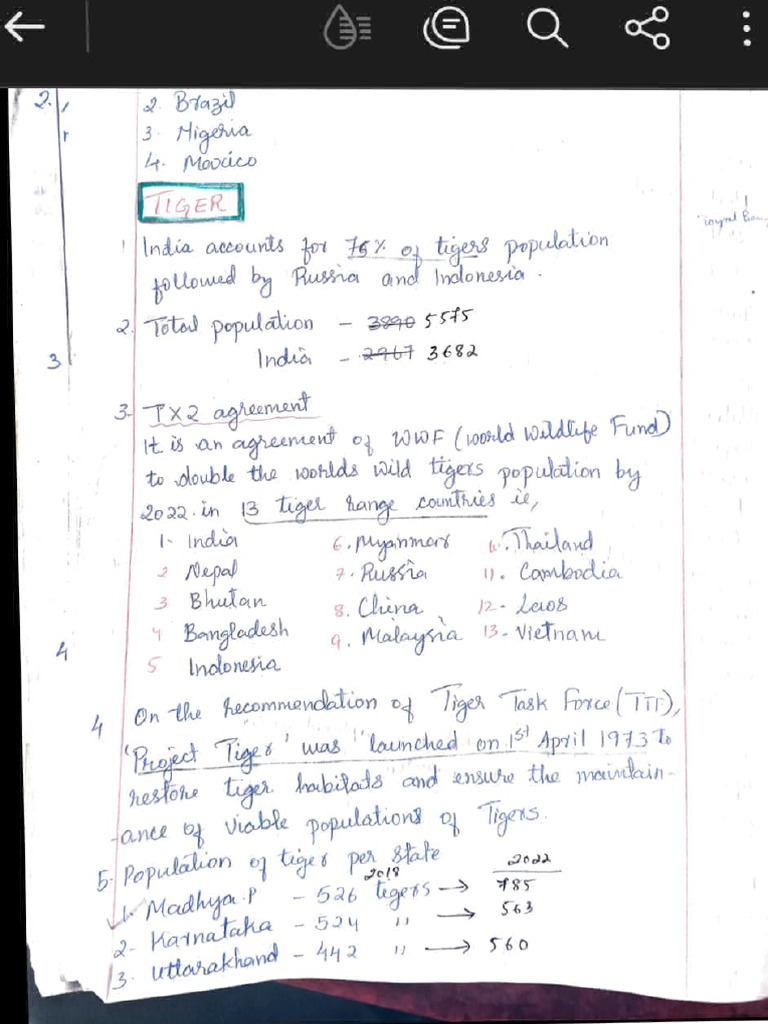 2.
2. Brazil
3. Nigeria
4. Moxico
TIGER
1 India accounts for 75% of tigers population
followed by Russia and Indonesia.
2. Total population - 3890 5575
India - 2967 3682
3
3. TX2 agreement
It is an agreement of WWF (World Wildlife Fund)
to double the worlds wild tigers population by
2022. in 13 tiger range countries ie,
1. India 6. Myanmar 10. Thailand
2 Nepal 7. Russia 11. Cambodia
3 Bhutan 8. China 12. Laos
4 Bangladesh 9. Malaysia 13. Vietnam
4
5 Indonesia
4 On the recommendation of Tiger Task Force (TTF),
'Project Tiger' was launched on 1st April 1973 to
restore tiger habitats and ensure the maintain-
-ance of viable populations of Tigers.
5. Population of tiger per state
2018 2022
1. Madhya. P - 526 tegers → 785
2. Karnataka - 524 " → 563
3. Uttarakhand - 442 " → 560